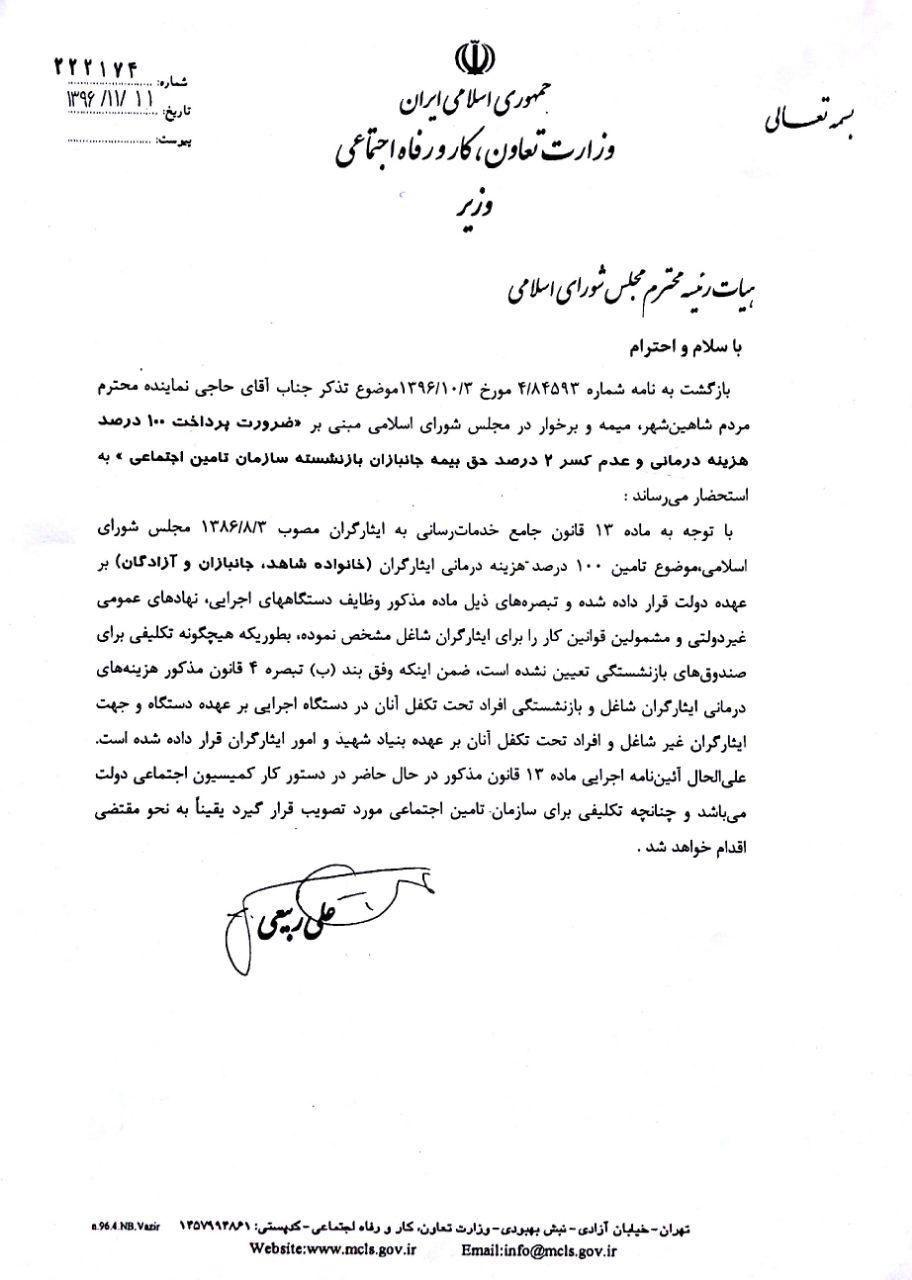 بسمه تعالی
جمهوری اسلامی ایران
وزارت تعاون، کار و رفاه اجتماعی
وزیر
شماره: ۲۲۲۱۷۴
تاریخ: ۱۳۹۶/۱۱/۱۱
پیوست:
هیات رئیسه محترم مجلس شورای اسلامی
با سلام و احترام
بازگشت به نامه شماره ۴/۸۴۵۹۳ مورخ ۱۳۹۶/۱۰/۳موضوع تذکر جناب آقای حاجی نماینده محترم
مردم شاهین‌شهر، میمه و برخوار در مجلس شورای اسلامی مبنی بر «ضرورت پرداخت ۱۰۰ درصد
هزینه درمانی و عدم کسر ۲ درصد حق بیمه جانبازان بازنشسته سازمان تامین اجتماعی » به
استحضار می‌رساند :
با توجه به ماده ۱۳ قانون جامع خدمات‌رسانی به ایثارگران مصوب ۱۳۸۶/۸/۳ مجلس شورای
اسلامی،موضوع تامین ۱۰۰ درصد هزینه درمانی ایثارگران (خانواده شاهد، جانبازان و آزادگان) بر
عهده دولت قرار داده شده و تبصره‌های ذیل ماده مذکور وظایف دستگاههای اجرایی، نهادهای عمومی
غیردولتی و مشمولین قوانین کار را برای ایثارگران شاغل مشخص نموده، بطوریکه هیچگونه تکلیفی برای
صندوق‌های بازنشستگی تعیین نشده است، ضمن اینکه وفق بند (ب) تبصره ۴ قانون مذکور هزینه‌های
درمانی ایثارگران شاغل و بازنشستگی افراد تحت تکفل آنان در دستگاه اجرایی بر عهده دستگاه و جهت
ایثارگران غیر شاغل و افراد تحت تکفل آنان بر عهده بنیاد شهید و امور ایثارگران قرار داده شده است.
علی‌الحال آئین‌نامه اجرایی ماده ۱۳ قانون مذکور در حال حاضر در دستور کار کمیسیون اجتماعی دولت
می‌باشد و چنانچه تکلیفی برای سازمان تامین اجتماعی مورد تصویب قرار گیرد یقیناً به نحو مقتضی
اقدام خواهد شد .
علی ربیعی
تهران-خیابان آزادی-نبش بهبودی-وزارت تعاون، کار و رفاه اجتماعی-کدپستی: ۱۴۵۷۹۹۴۸۶۱
n.96.4.NB.Vazir
Website:www.mcls.gov.ir Email:info@mcls.gov.ir